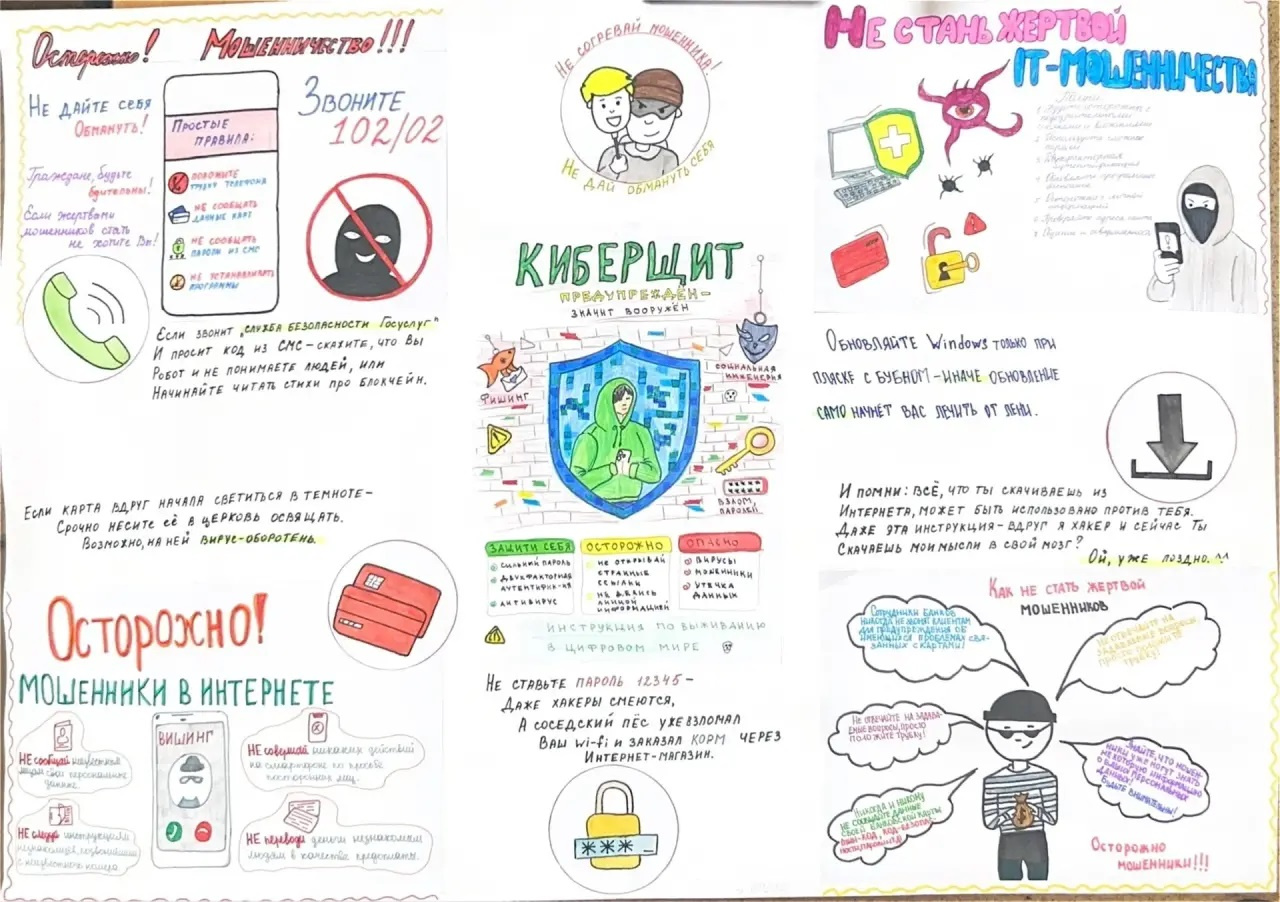 Осторожно! Мошенничество!!!
Не дайте себя
обмануть!
Граждане, будьте
бдительны!
Если жертвами
мошенников стать
не хотите Вы!
Простые
правила:
Положите
трубку телефона
Не сообщать
данные карт
Не сообщать
пароли из СМС
Не устанавливать
программы
Звоните
102/02
Если звонит „служба безопасности Госуслуг"
И просит код из СМС – скажите, что Вы
робот и не понимаете людей, или
начинайте читать стихи про блокчейн.
Если карта вдруг начала светиться в темноте –
срочно несите её в церковь освящать.
Возможно, на ней вирус-оборотень.
Осторожно!
Мошенники в интернете
Не сообщай неизвестным
лицам свои персональные
данные.
Не следуй инструкциям
незнакомцев, позвонивших
с неизвестного номера.
Вишинг
Не совершай никаких действий
на смартфоне по просьбе
посторонних лиц.
Не переводи деньги незнакомым
людям в качестве предоплаты.
Не согревай мошенника!
Не дай обмануть себя
Киберщит
предупреждён –
значит вооружён
Фишинг
Социальная
инженерия
Взлом
паролей
Защити себя
сильный пароль
двухфакторная
аутентифик-ия
антивирус
Осторожно
не открывай
странные
ссылки
не делись
личной
информацией
Опасно
вирусы
мошенники
утечка
данных
Инструкция по выживанию
в цифровом мире
Не ставьте пароль 12345 –
даже хакеры смеются,
а соседский пёс уже взломал
Ваш wi-fi и заказал корм через
интернет-магазин.
***_
Не стань жертвой
IT-мошенничества
Обновляйте Windows только при
пляске с бубном – иначе обновление
само начнет вас лечить от лени.
И помни: всё, что ты скачиваешь из
интернета, может быть использовано против тебя.
Даже эта инструкция – вдруг я хакер и сейчас ты
скачаешь мои мысли в свой мозг?
Ой, уже поздно. ^^
Как не стать жертвой
мошенников
Сотрудники банков
никогда не звонят клиентам
для предупреждения об
имеющихся проблемах свя-
занных с картами!
Не отвечайте на
задаваемые вопросы,
просто положите
трубку!
Не отвечайте на задава-
емые вопросы, просто
положите трубку!
Знайте, что мошен-
ники уже могут знать
некоторую информацию
о ваших персональных
данных!
Будьте внимательны!
Никогда и никому
не сообщайте данные
своей банковской карты
Осторожно
мошенники!!!